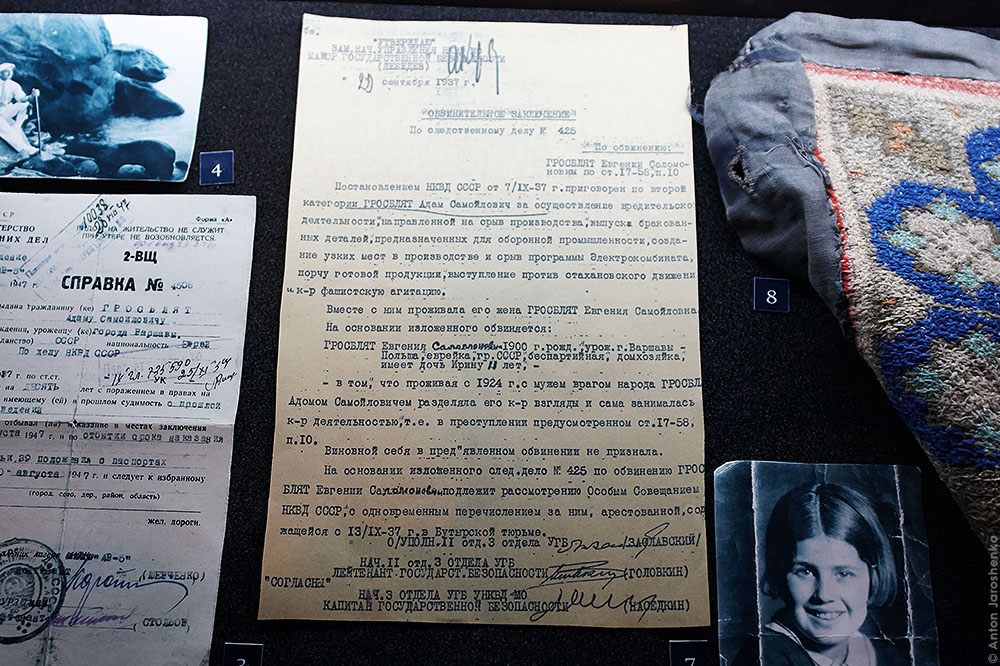 "УТВЕРЖДАЮ"
ЗАМ.НАЧ.УПРАВЛЕНИЯ
МАЙОР ГОСУДАРСТВЕННОЙ БЕЗОПАСНОСТИ
(ЛЕБЕДЕВ)
" 20 сентября 1937 г.
ОБВИНИТЕЛЬНОЕ ЗАКЛЮЧЕНИЕ
По следственному делу № 425
По обвинению:
ГРОСБЛЯТ Евгении Соломо-
новны по ст.17-58,п.10
Постановлением НКВД СССР от 7/IX-37 г.приговорен по второй
категории ГРОСБЛЯТ Адам Самойлович за осуществление вредительской
деятельности,направленной на срыв производства,выпуска бракован-
ных деталей,предназначенных для оборонной промышленности,созда-
ние узких мест в производстве и срыв программы Электрокомбината,
порчу готовой продукции,выступление против стахановского движени
и к-р фашистскую агитацию.
Вместе с ним проживала его жена ГРОСБЛЯТ Евгения Самойловна
На основании изложенного обвиняется:
ГРОСБЛЯТ Евгения 1900 г.рожд.,урож.г.Варшавы -
Польша,еврейка,гр.СССР,беспартийная, домхозяйка,
имеет дочь Ирину 11 лет, -
- в том, что проживая с 1924 г.с мужем врагом народа ГРОСБЛ
Адомом Самойловичем разделяла его к-р взгляды и сама занималась
к-р деятельностью,т.е. в преступлении предусмотренном ст.17-58,
п.10.
Виновной себя в пред"явленном обвинении не признала.
На основании изложенного след.дело № 425 по обвинению ГРОС
БЛЯТ Евгении подлежит рассмотрению Особым Совещанием
НКВД СССР,с одновременным перечислением за ним, арестованной,сод
жащейся с 13/IX-37 г.в Бутырской тюрьме.
О/УПОЛН.11 отд.3 отдела УГБ /ЗАСЛАВСКИЙ/
НАЧ.11 отд.3 ОТДЕЛА УГБ
ЛЕЙТЕНАНТ.ГОСУДАРСТ.БЕЗОПАСНОСТИ (ГОЛОВКИН)
"СОГЛАСНЫ"
НАЧ.3 ОТДЕЛА УГБ УНКВД МО
КАПИТАН ГОСУДАРСТВЕННОЙ БЕЗОПАСНОСТИ (НАСЕДКИН)
4
СССР
Форма «А»
НА ЖИТЕЛЬСТВО НЕ СЛУЖИТ
ПРИ УТЕРЕ НЕ ВОЗОБНОВЛЯЕТСЯ.
2-ВЩ
СПРАВКА № 4506
выдана гражданину (ке) ГРОСБЛЯТ
Адаму Самойловичу
города Варшавы
СССР национальность Еврей
По делу НКВД СССР
на ДЕСЯТЬ лет с поражением в правах на
имеющему (ей) в прошлом судимость
отбывал (ла) наказание в местах заключения
1947 г. и по отбытии срока наказания
39 положения о паспортах
августа 1947 г. и следует к избранному
(город, село, дер., район, область)
жел. дороги.
(ШЕВЧЕНКО)
(СТОЛБОВ)
3
8
7
© Anton Jaroshenko